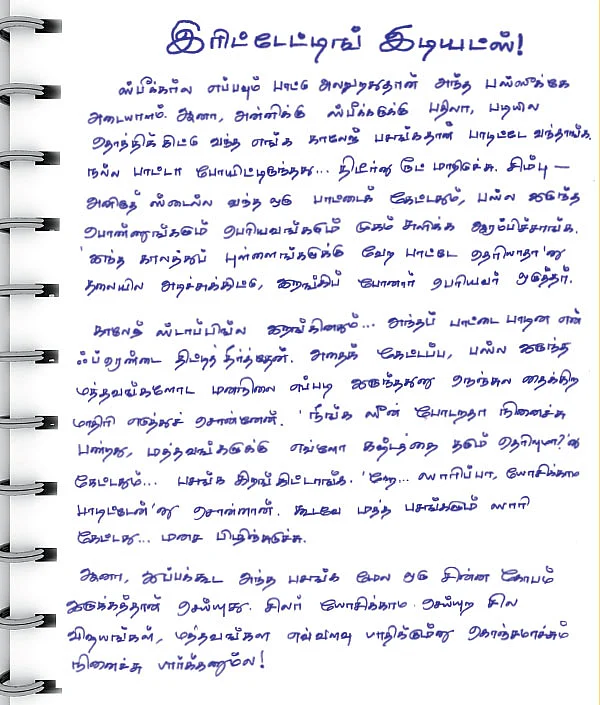 இரிட்டேட்டிங் இடியட்ஸ்!
ஸ்பீக்கர்ல எப்பவும் பாட்டு அலறுறதுதான் அந்த பஸ்ஸுக்கே
அடையாளம். ஆனா, அன்னிக்கு ஸ்பீக்கருக்கு பதிலா, படியில
தொத்திக்கிட்டு வந்த எங்க காலேஜ் பசங்கதான் பாடிட்டே வந்தாங்க.
நல்ல பாட்டா போயிட்டிருந்தது... திடீர்னு ரூட் மாறிடுச்சு. சிம்பு -
அனிருத் ஸ்டைல்ல வந்த ஒரு பாட்டைக் கேட்டதும், பஸ்ல இருந்த
பொண்ணுங்களும் பெரியவங்களும் முகம் சுளிக்க ஆரம்பிச்சாங்க.
'இந்த காலத்துப் புள்ளைங்களுக்கு வேற பாட்டே தெரியாதா'னு
தலையில அடிச்சுக்கிட்டு, இறங்கிப் போனார் பெரியவர் ஒருத்தர்.
காலேஜ் ஸ்டாப்பிங்ல இறங்கினதும்... அந்தப் பாட்டை பாடின என்
ஃப்ரெண்டை திட்டித் தீர்த்தேன். அதைக் கேட்டப்ப, பஸ்ல இருந்த
மத்தவங்களோட மனநிலை எப்படி இருந்ததுனு நெஞ்சுல தைக்கிற
மாதிரி எடுத்துச் சொன்னேன். 'நீங்க ஸீன் போடறதா நினைச்சு
பண்றது, மத்தவங்களுக்கு எவ்ளோ கஷ்டத்தை தரும் தெரியுமா?'னு
கேட்டதும்... பசங்க கிறங்கிட்டாங்க. 'ஹே... ஸாரிப்பா, யோசிக்காம
பாடிட்டேன்'னு சொன்னான். கூடவே மத்த பசங்களும் ஸாரி
கேட்டது... மனசை பிழிஞ்சுடுச்சு.
ஆனா, இப்பக்கூட அந்த பசங்க மேல ஒரு சின்ன கோபம்
இருக்கத்தான் செய்யுது. சிலர் யோசிக்காம செய்யுற சில
விஷயங்கள், மத்தவங்கள எவ்வளவு பாதிக்கும்னு கொஞ்சமாச்சும்
நினைச்சு பார்க்கணும்ல!